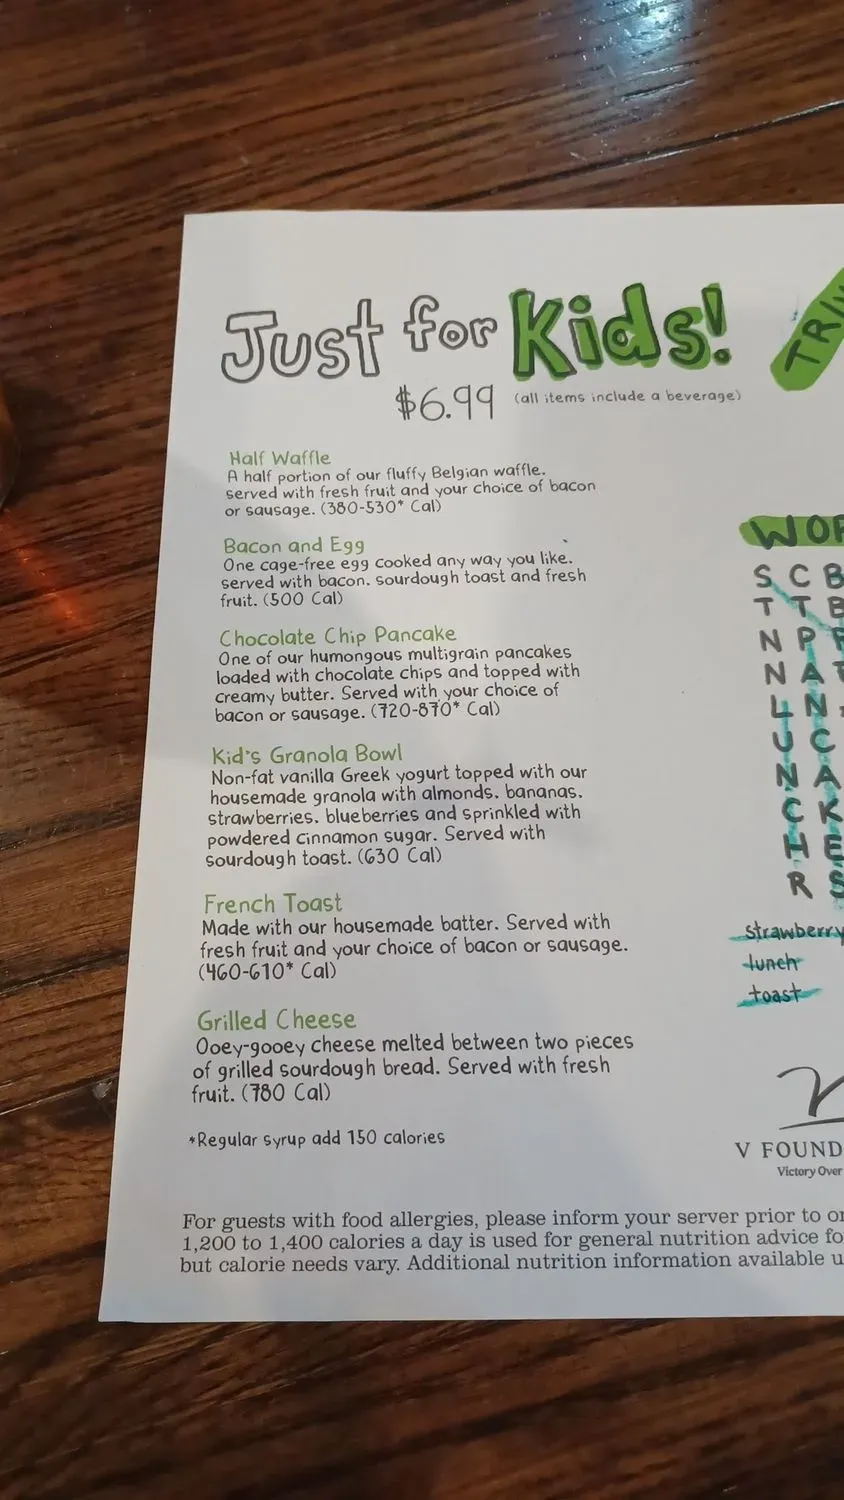 Just for Kids!
$6.99 (all items include a beverage)
Half Waffle
A half portion of our fluffy Belgian waffle.
served with fresh fruit and your choice of bacon
or sausage. (380-530* Cal)
Bacon and Egg
One cage-free egg cooked any way you like.
served with bacon. sourdough toast and fresh
fruit. (500 Cal)
Chocolate Chip Pancake
One of our humongous multigrain pancakes
loaded with chocolate chips and topped with
creamy butter. Served with your choice of
bacon or sausage. (720-870* Cal)
Kid's Granola Bowl
Non-fat vanilla Greek yogurt topped with our
housemade granola with almonds. bananas.
strawberries. blueberries and sprinkled with
powdered cinnamon sugar. Served with
sourdough toast. (630 Cal)
French Toast
Made with our housemade batter. Served with
fresh fruit and your choice of bacon or sausage.
(460-610* Cal)
Grilled Cheese
Ooey-gooey cheese melted between two pieces
of grilled sourdough bread. Served with fresh
fruit. (780 Cal)
*Regular syrup add 150 calories
For guests with food allergies, please inform your server prior to
1,200 to 1,400 calories a day is used for general nutrition advice
but calorie needs vary. Additional nutrition information available
S C B
T T B
N P
N A
L N
U C
N A
C K
H E
R S
strawberry
lunch
toast
V FOUND
Victory Over